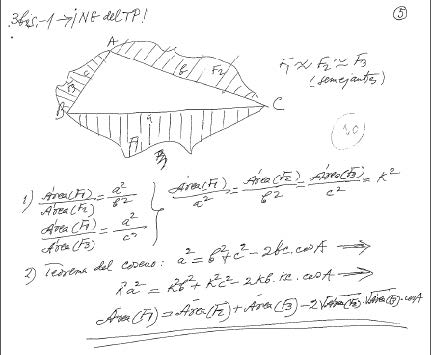 3bis.-1 → ¡NE del TP!
5
A
B
C
F3
c
b
F2
a
F1
F1 ≈ F2 ≈ F3
(semejantes)
1) Área(F1)/Área(F2) = a²/b²
Área(F1)/Área(F3) = a²/c²
Área(F1)/a² = Área(F2)/b² = Área(F3)/c² = k²
2) Teorema del coseno: a² = b² + c² - 2bc.cosA ⟹
k²a² = k²b² + k²c² - 2kb.kc.cosA ⟹
Área(F1) = Área(F2) + Área(F3) - 2√Área(F2).√Área(F3).cosA